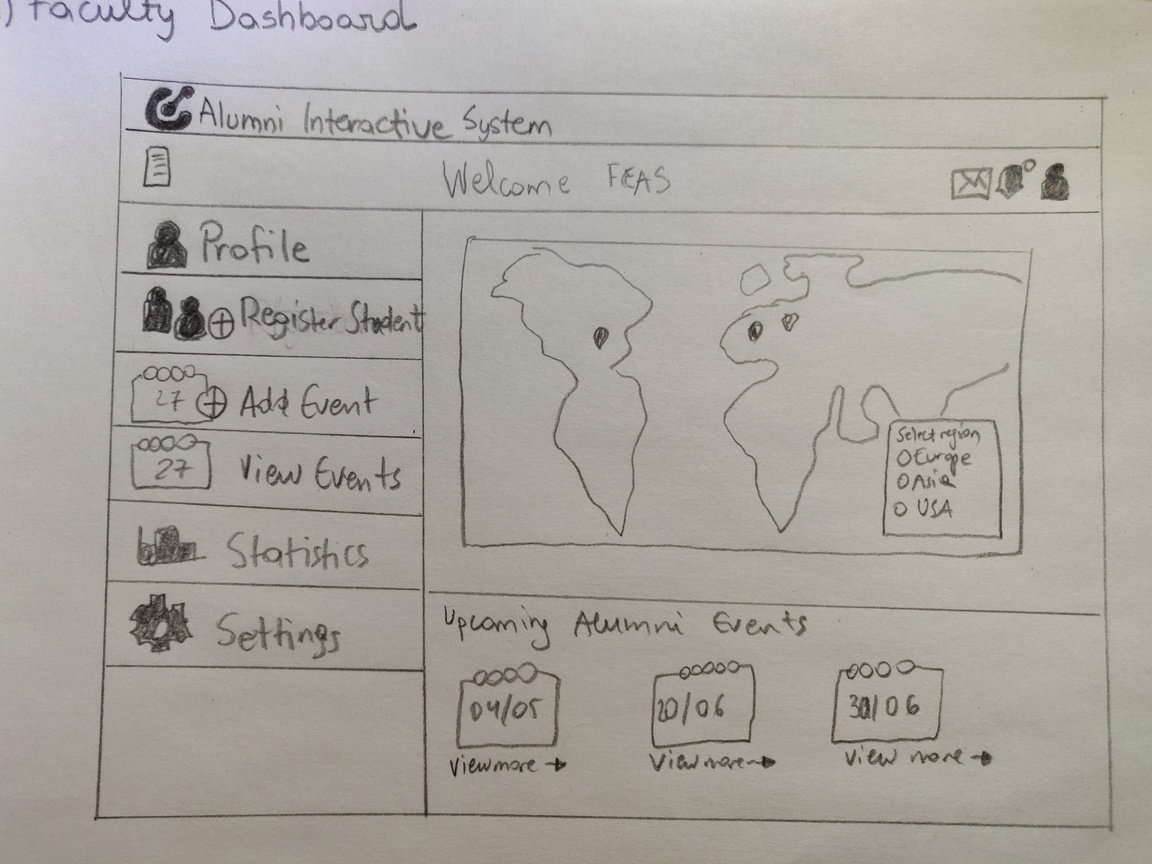 ) Faculty Dashboard
Alumni Interactive System
Welcome FEAS
Profile
Register Student
27 Add Event
27 View Events
Statistics
Settings
Select region
Europe
Asia
USA
Upcoming Alumni Events
04/05 20/06 30/06
View more → View more → View more →